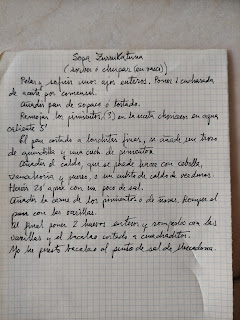 Sopa Zurrukutuna
(sorber ó chupar (en vasco))
Pelar y sofreir unos ajos enteros. Poner 1 cucharada
de aceite por comensal.
Añadir pan de sopaco ó tostado.
Remojar los pimientos, (3) en la receta choriceros en agua
caliente 5'
El pan cortado a lonchitas finas, se añade un trozo
de guindilla y una cuch de pimentón
Añadir el caldo, que se puede hacer con cebolla,
zanahoria y puerro, o un cubito de caldo de verduras.
Hervir 20' aprox con poco de sal.
Añadir la carne de los pimientos o de ñoras. Romper el
pan con las varillas.
Al final poner 2 huevos enteros y romperlos con las
varillas y el bacalao cortado a cuadraditos.
Yo he puesto bacalao al punto de sal de Mercadona.